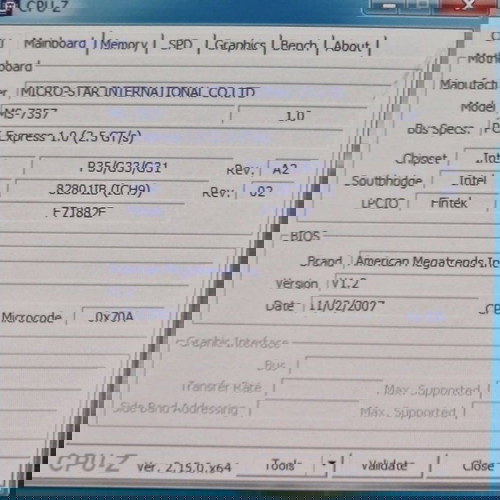 CPU-Z
Mainboard Memory SPD Graphics Bench About
Motherboard
MICRO-STAR INTERNATIONAL CO.,LTD
Model MS-7357 1.0
Bus Specs. Express 1.0 (2.5 GT/s)
Chipset Intel P35/G33/G31 Rev. A2
Southbridge Intel 82801IB (ICH9) Rev. 02
LPCIO Fintek F71882F
BIOS
Brand American Megatrends In
Version V1.2
Date 11/02/2007 CP Microcode 0x70A
Graphic Interface
Bus
Transfer Rate Max. Supported
Side Band Addressing Max. Supported
CPU-Z Ver. 2.15.0.x64 Tools Validate Close